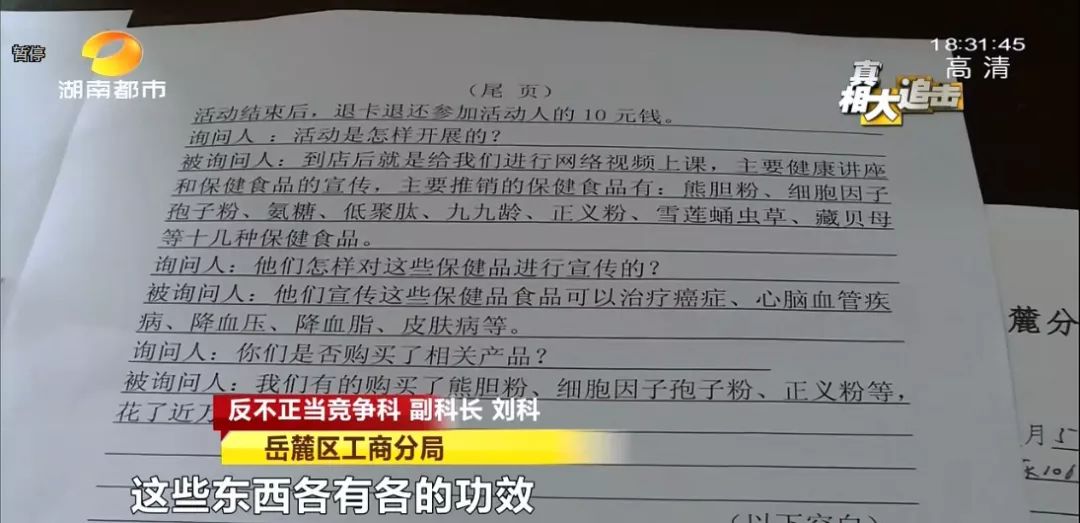 暂停
湖南都市
18:31:45
高清
真相大追击
（尾 页）
活动结束后，退卡退还参加活动人的 10 元钱。
询问人 ：活动是怎样开展的？
被询问人：到店后就是给我们进行网络视频上课，主要健康讲座
和保健食品的宣传，主要推销的保健食品有：熊胆粉、细胞因子
孢子粉、氨糖、低聚肽、九九龄、正义粉、雪莲蛹虫草、藏贝母
等十几种保健食品。
询问人：他们怎样对这些保健品进行宣传的？
被询问人：他们宣传这些保健品食品可以治疗癌症、心脑血管疾
病、降血压、降血脂、皮肤病等。
询问人：你们是否购买了相关产品？
被询问人：我们有的购买了熊胆粉、细胞因子孢子粉、正义粉等，
花了近万
反不正当竞争科 副科长 刘科
岳麓区工商分局
这些东西各有各的功效
（以下空白）
麓分
月5